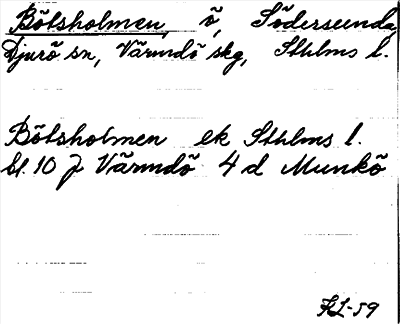 Bötsholmen, ö, Södersunda,
Djurö sn, Värmdö skg, Sthlms l.
Bötsholmen ek Sthlms l.
bl. 10 J Värmdö 4 d Munkö
RL-59